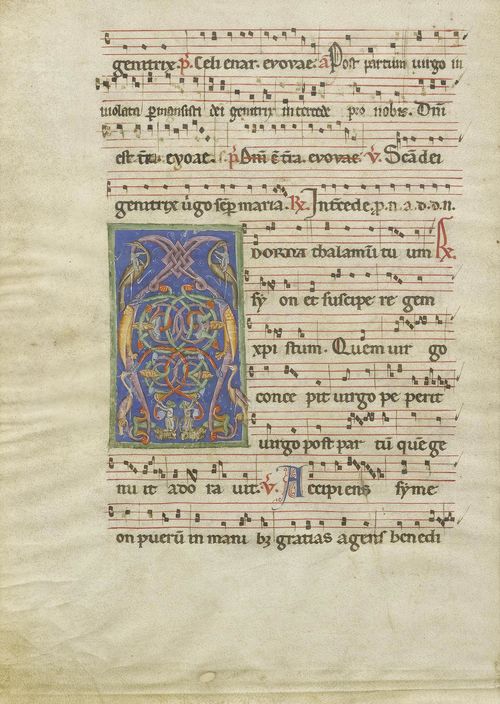 genitrix. p. Celi enar. evovae. a Post partum virgo in
violata permansisti dei genitrix intercede pro nobis. Dñi
est t̃ra. evovae. p. Dñi ẽ t̃ra. evovae. v. Sc̃a dei
genitrix ṽgo sẽp maria. R. Intercede. p. n. a. d. d. n.
DORNA thalamũ tu um R.
sy on et suscipe re gem
xpi stum. Quem vir go
conce pit virgo pe perit
virgo post par tũ quẽ ge
nu it ado ra vit. v. Accipiens syme
on puerũ in mani bꝫ gratias agens benedi